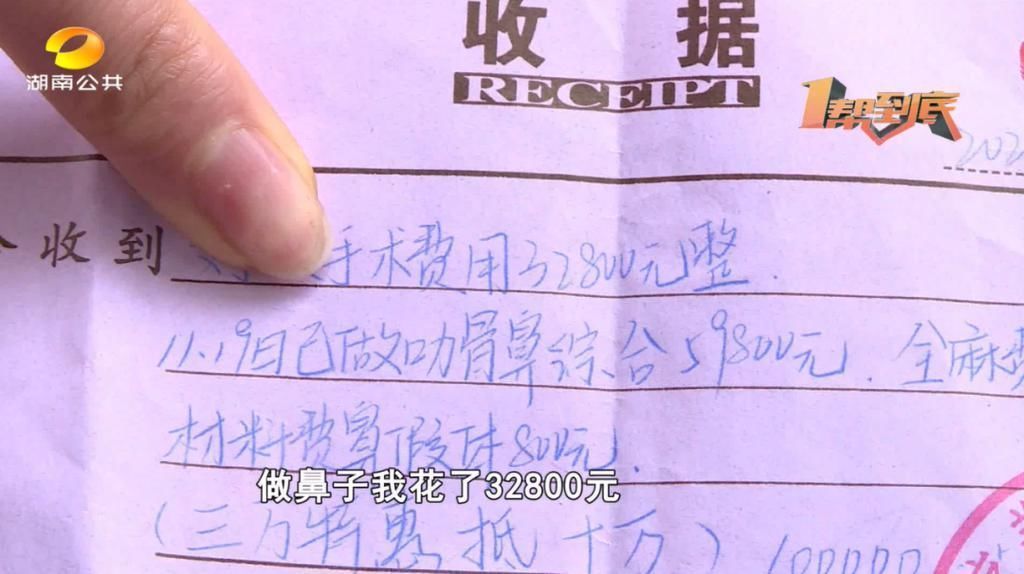 湖南公共
收据
RECEIPT
1帮到底
202
收到 手术费用32800元整.
11.19日已做肋骨鼻综合59800元. 全麻费
材料费鼻假体800元.
做鼻子我花了32800元
(三万特惠抵十万) 100000